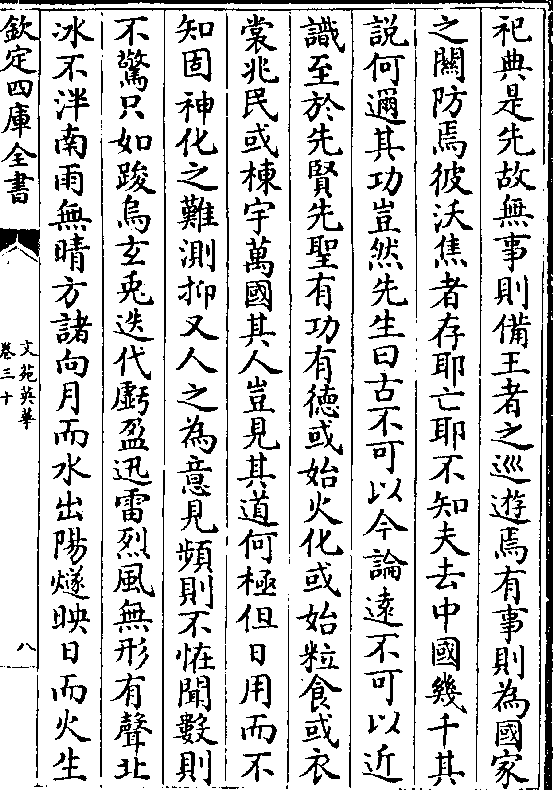 祀典是先故無事則備王者之巡遊焉有事則為國家
之關防焉彼沃焦者存耶亡耶不知夫去中國幾千其
說何邇其功豈然先生曰古不可以今論遠不可以近
識至於先賢先聖有功有德或始火化或始粒食或衣
裳兆民或棟宇萬國其人豈見其道何極但日用而不
知固神化之難測抑又人之為意見頻則不恠聞數則
不驚只如踆烏玄兎迭代虧盈迅雷烈風無形有聲北
冰不泮南雨無晴方諸向月而水出陽燧映日而火生
欽定四庫全書
文苑英華
卷三十
八